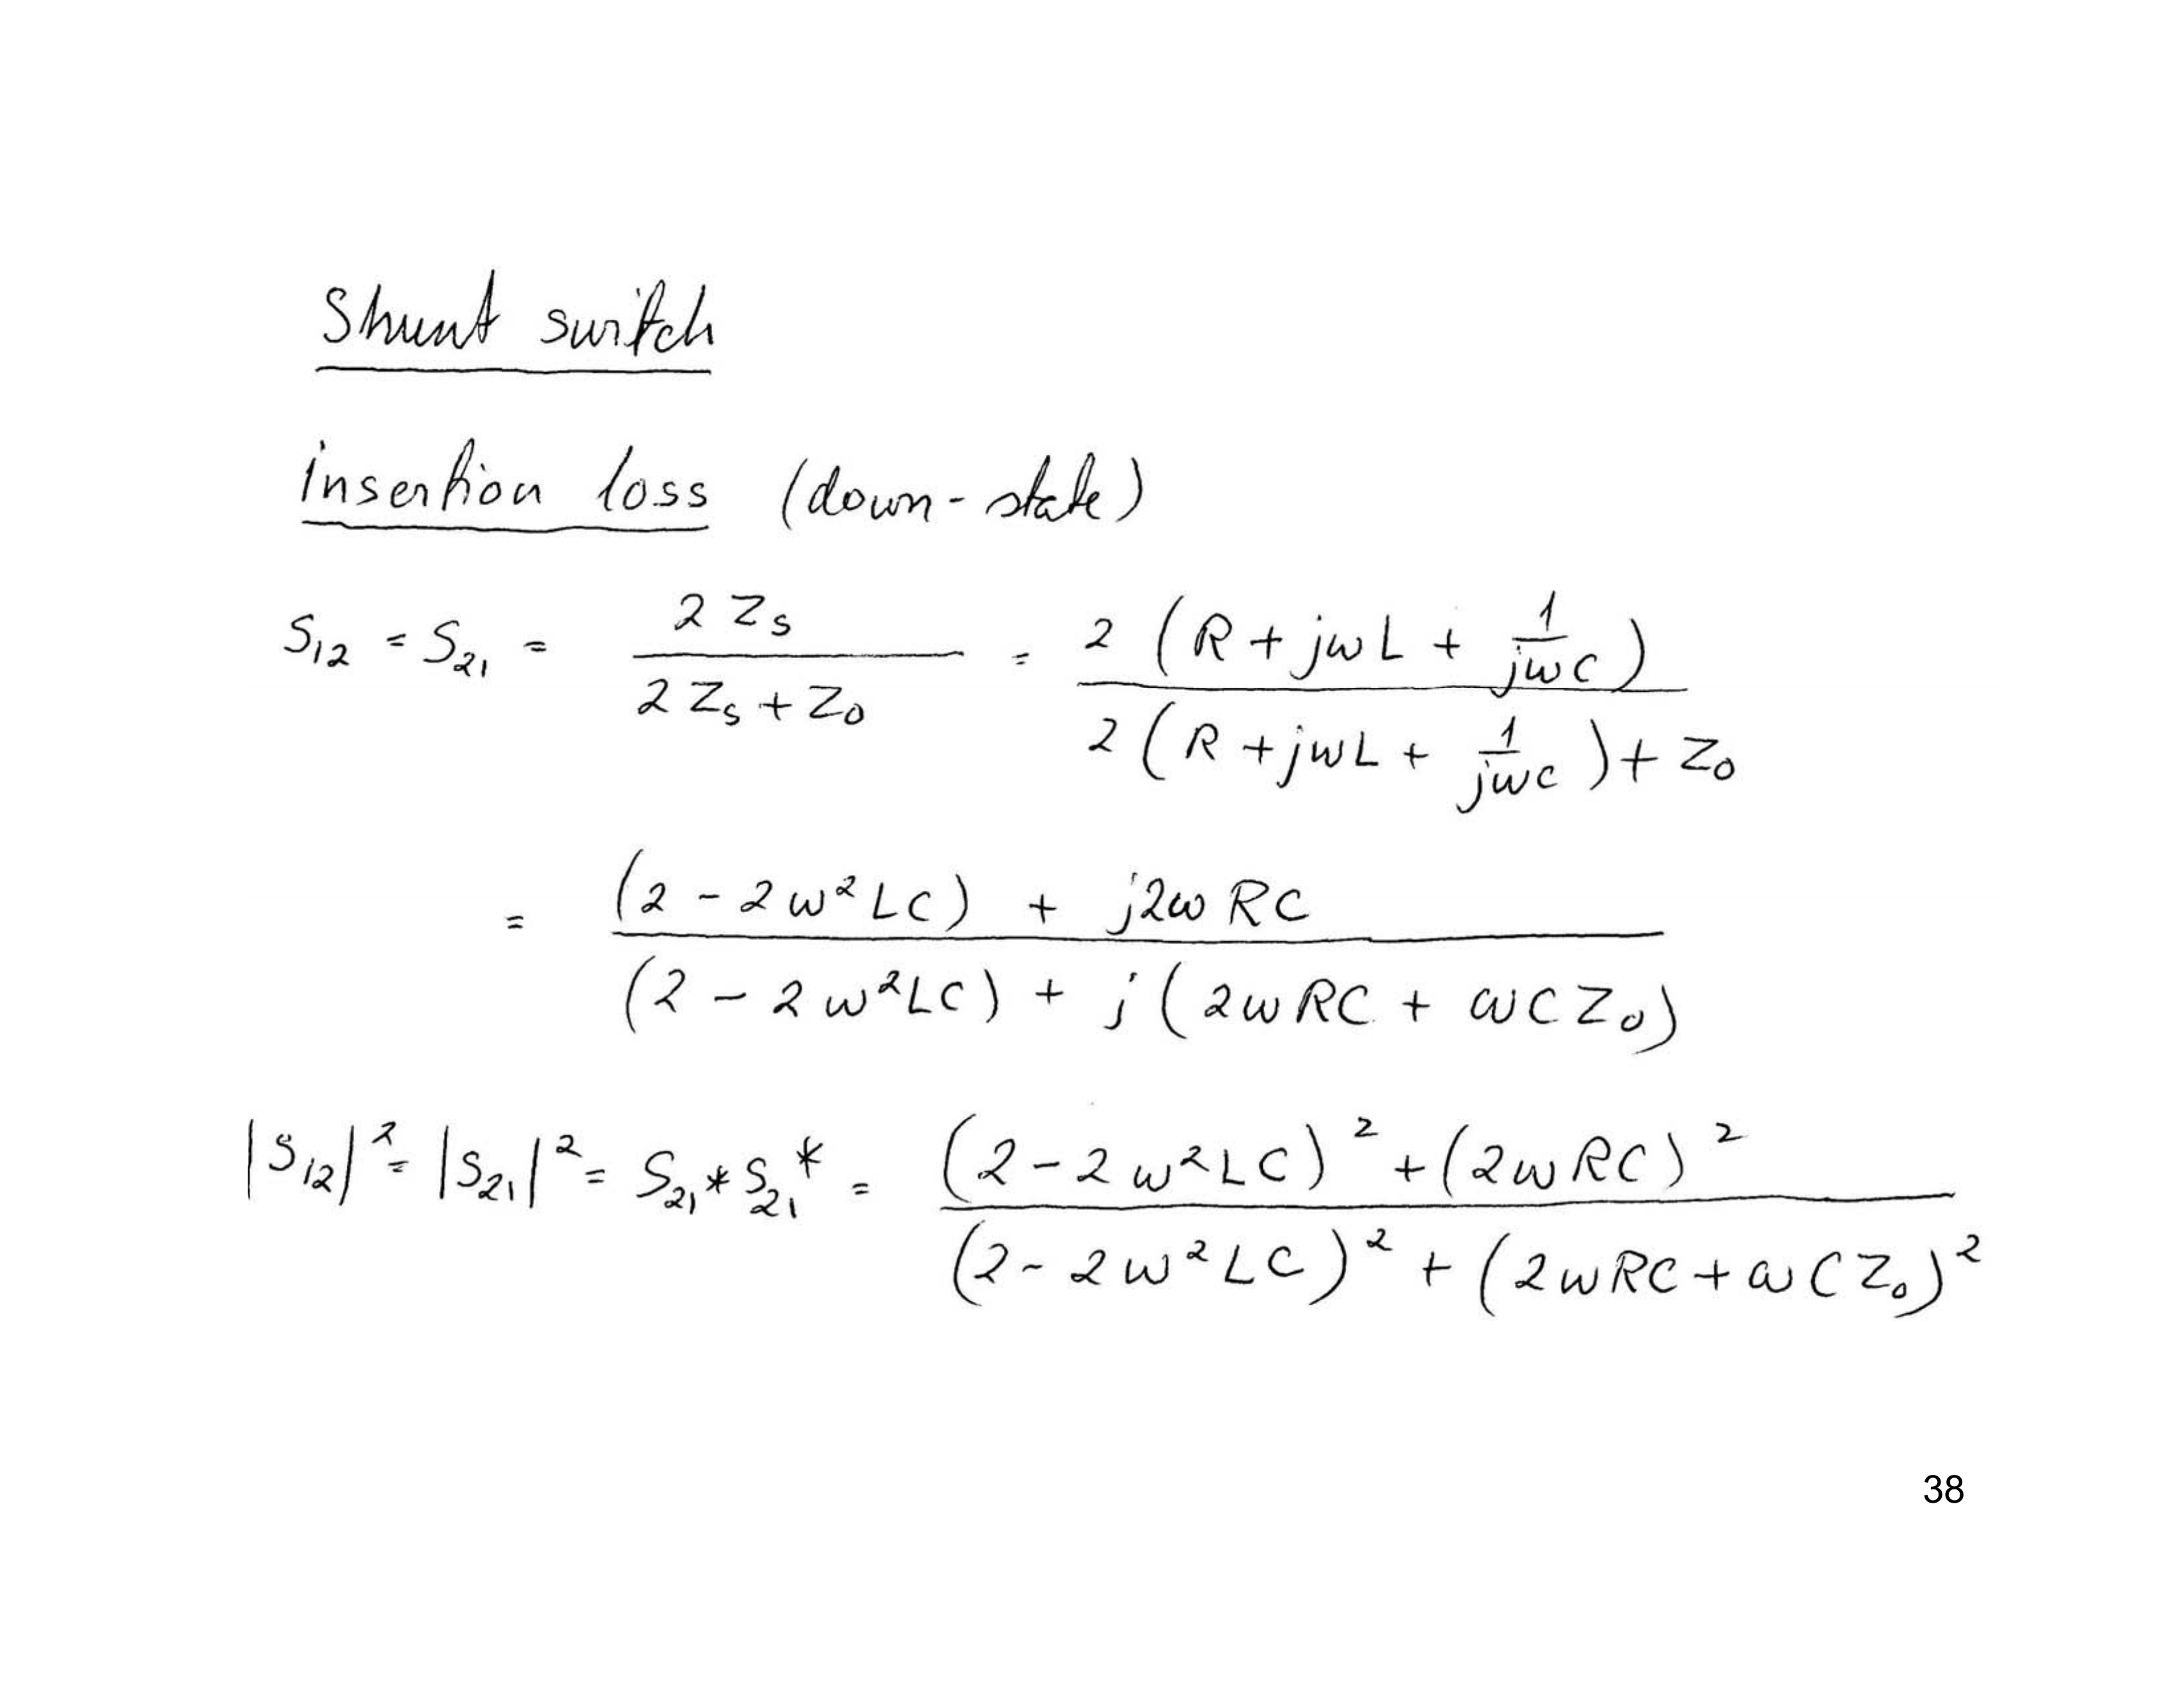 Shunt switch
insertion loss (down-state)
S₁₂ = S₂₁ = 2 Zs / (2 Zs + Z₀) = 2 (R + jωL + 1/jωC) / (2 (R + jωL + 1/jωC) + Z₀)
= ((2 - 2ω²LC) + j2ωRC) / ((2 - 2ω²LC) + j(2ωRC + ωCZ₀))
|S₁₂|² = |S₂₁|² = S₂₁ * S₂₁* = ((2 - 2ω²LC)² + (2ωRC)²) / ((2 - 2ω²LC)² + (2ωRC + ωCZ₀)²)
38